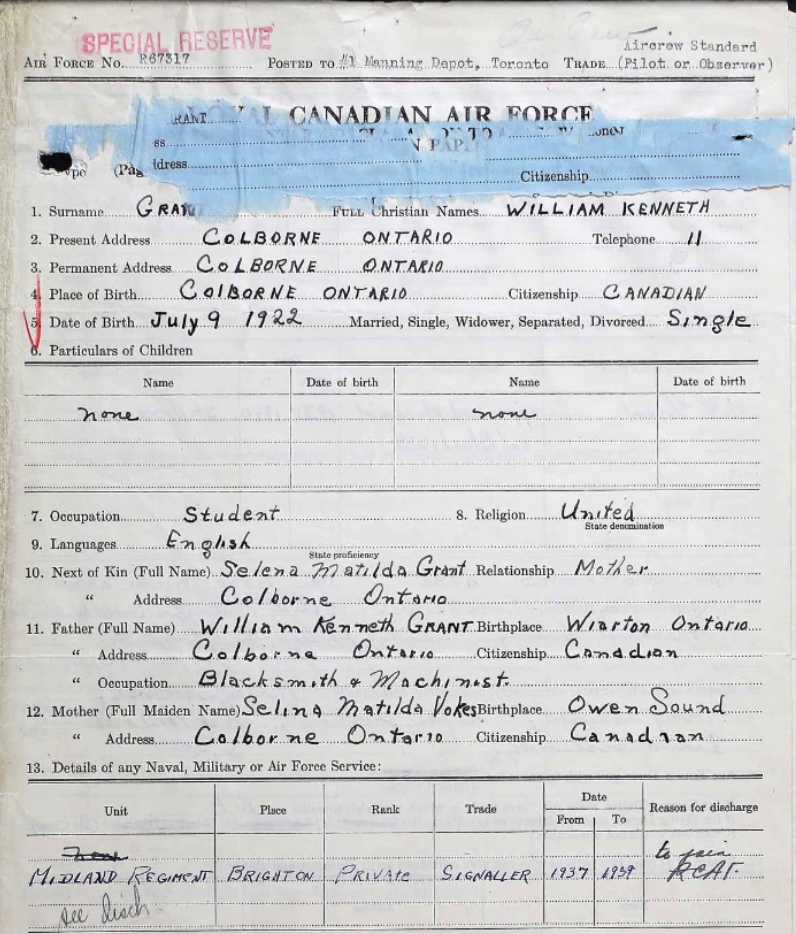 SPECIAL RESERVE
Aircrew Standard
AIR FORCE NO. R67317 POSTED TO #1 Manning Depot, Toronto TRADE (Pilot or Observer)
ROYAL CANADIAN AIR FORCE
RANT
ss
ddress
Citizenship
1. Surname GRANT FULL Christian Names WILLIAM KENNETH
2. Present Address COLBORNE ONTARIO Telephone 11
3. Permanent Address COLBORNE ONTARIO
4. Place of Birth COLBORNE ONTARIO Citizenship CANADIAN
5. Date of Birth July 9 1922 Married, Single, Widower, Separated, Divorced Single
6. Particulars of Children
Name Date of birth Name Date of birth
none none
7. Occupation Student 8. Religion United
State denomination
9. Languages English
State proficiency
10. Next of Kin (Full Name) Selena Matilda Grant Relationship Mother
" Address Colborne Ontario
11. Father (Full Name) William Kenneth GRANT Birthplace Wiarton Ontario
" Address Colborne Ontario Citizenship Canadian
" Occupation Blacksmith & Machinist.
12. Mother (Full Maiden Name) Selina Matilda Vokes Birthplace Owen Sound
" Address Colborne Ontario Citizenship Canadian
13. Details of any Naval, Military or Air Force Service:
Unit Place Rank Trade Date Reason for discharge
From To
MIDLAND REGIMENT BRIGHTON PRIVATE SIGNALLER 1937 1939 to join RCAF.
see disch.